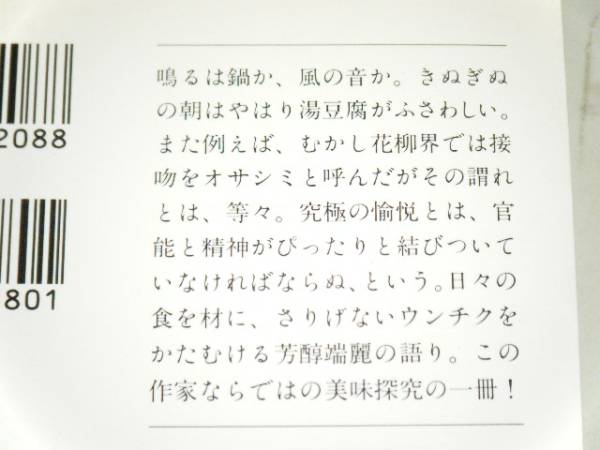 鳴るは鍋か、風の音か。きぬぎぬ
の朝はやはり湯豆腐がふさわしい。
また例えば、むかし花柳界では接
吻をオサシミと呼んだがその謂れ
とは、等々。究極の愉悦とは、官
能と精神がぴったりと結びついて
いなければならぬ、という。日々の
食を材に、さりげないウンチクを
かたむける芳醇端麗の語り。この
作家ならではの美味探究の一冊！
2088
801